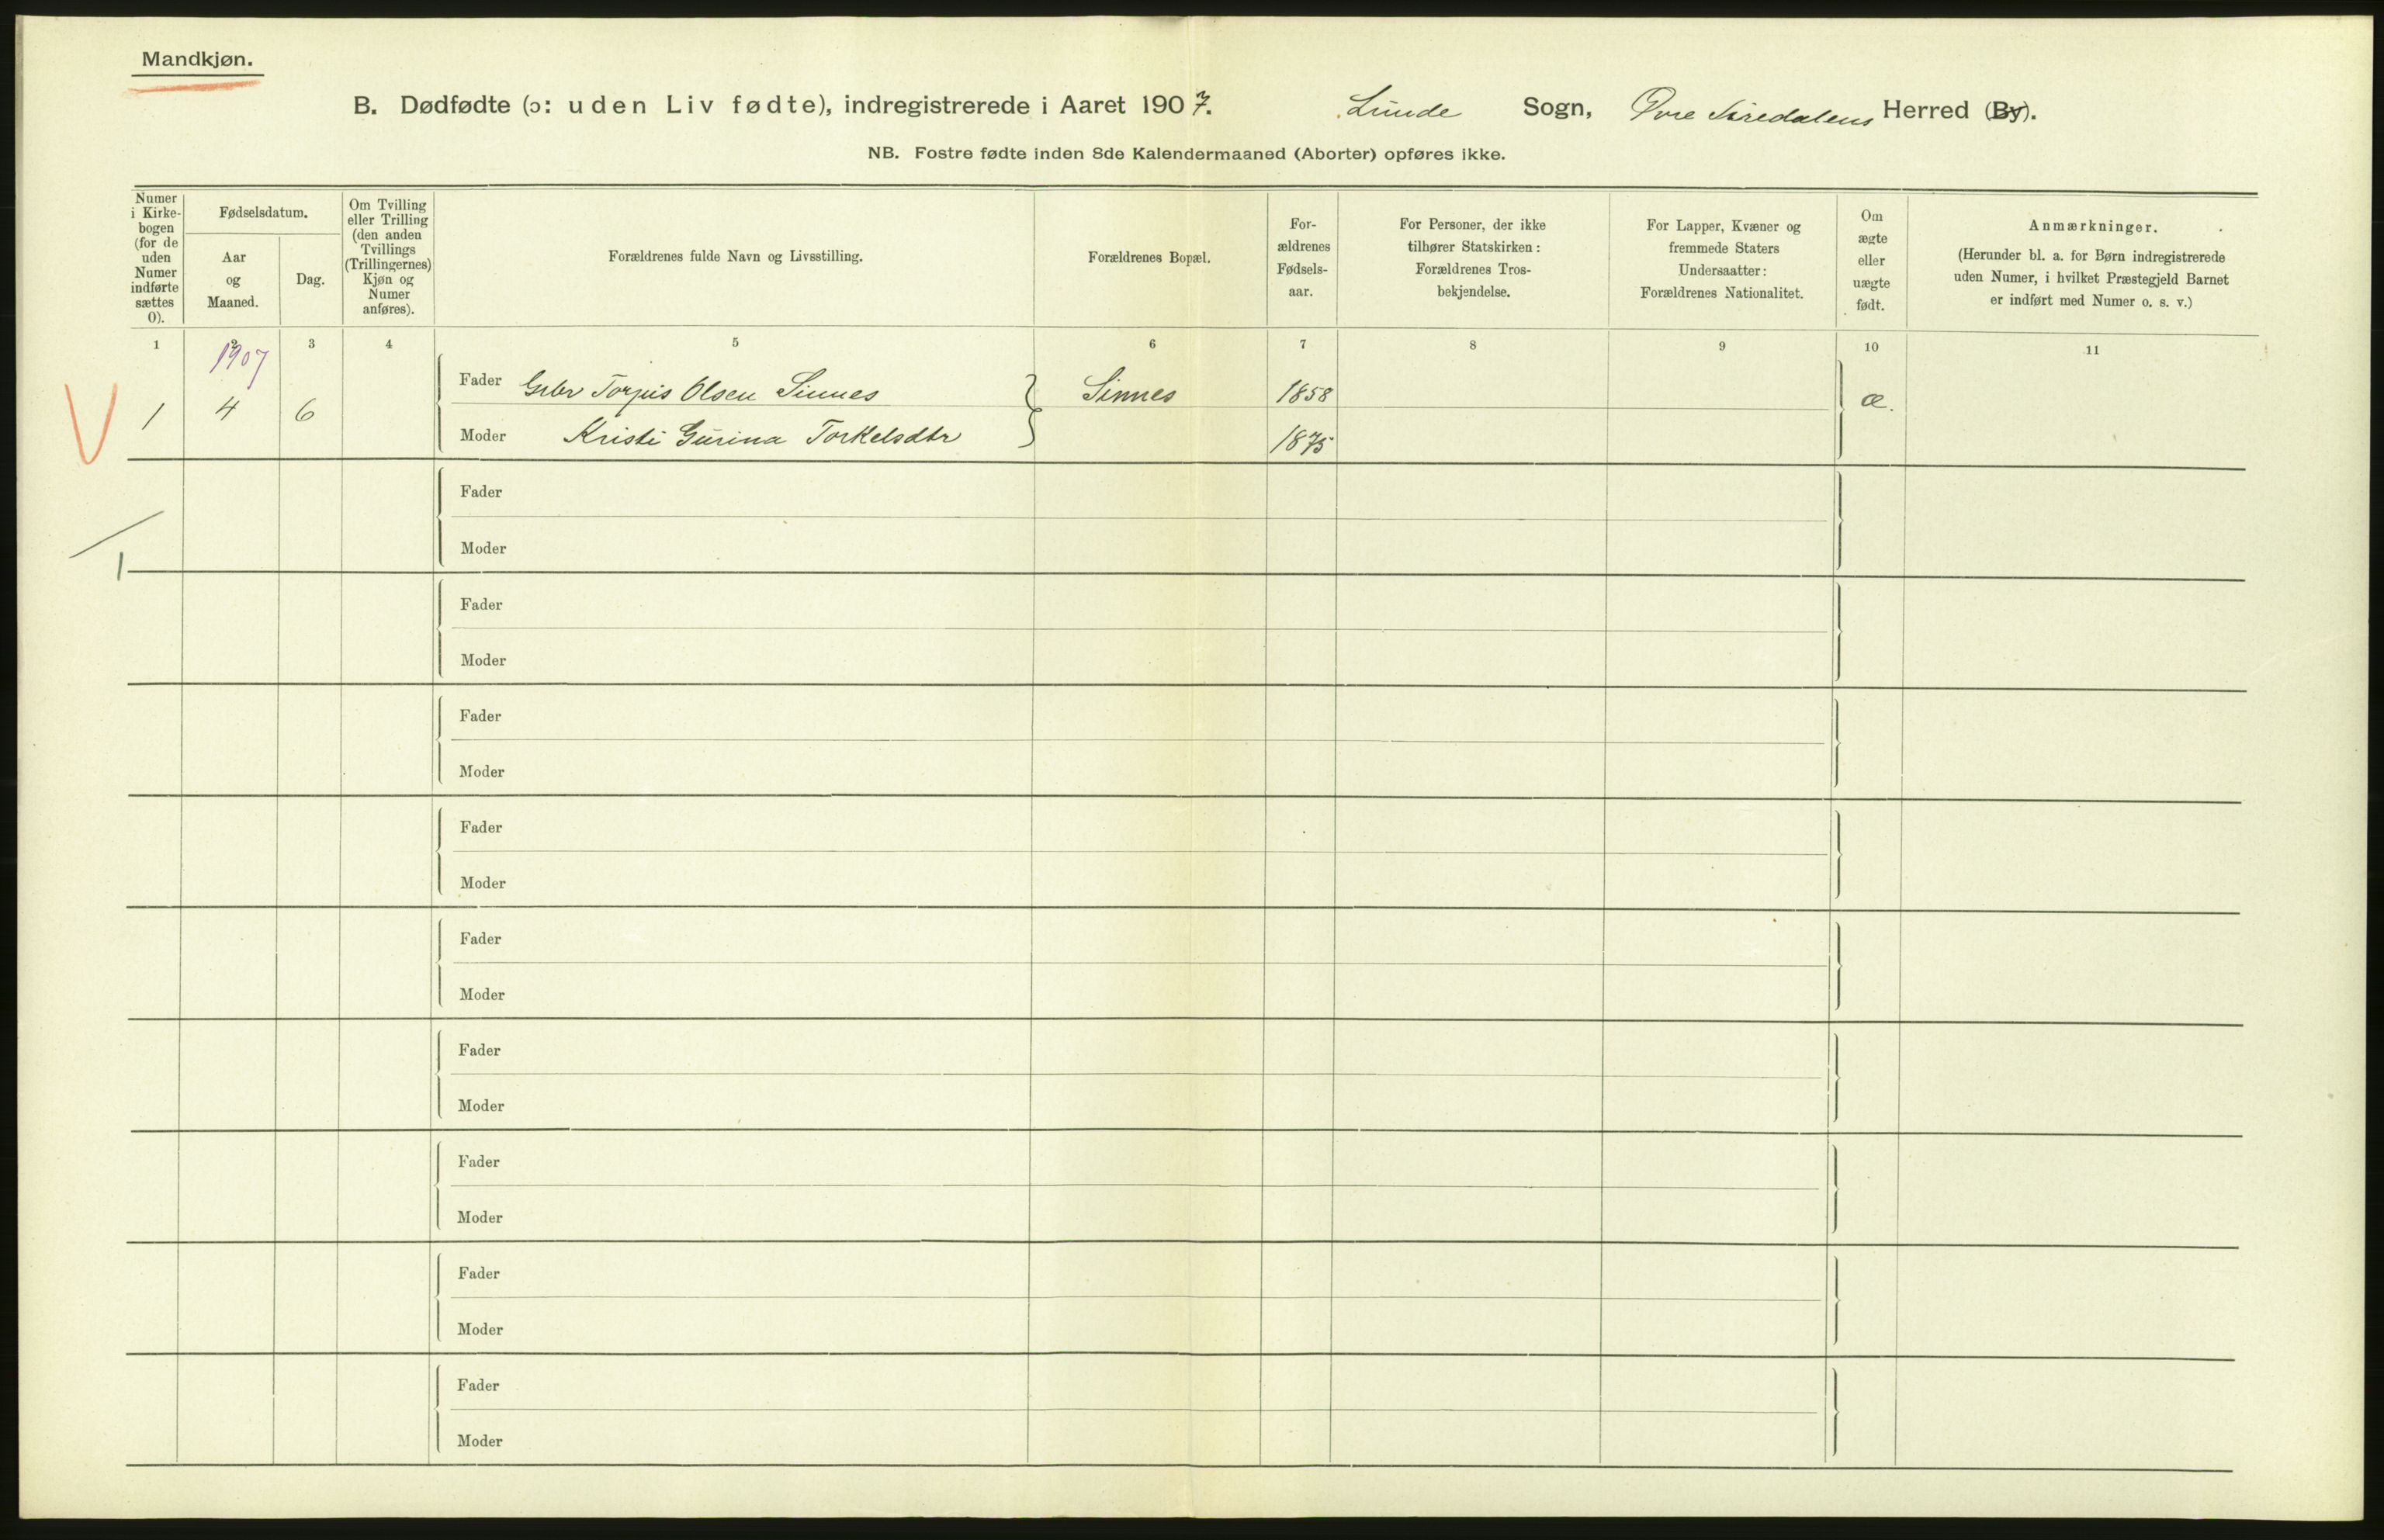 Mandkjøn.
B. Dødfødte (ɔ: uden Liv fødte), indregistrerede i Aaret 1907. Lunde Sogn, Øvre Siredalens Herred (By).
NB. Fostre fødte inden 8de Kalendermaaned (Aborter) opføres ikke.
Numer
i Kirke-
bogen
(for de
uden
Numer
indførte
sættes
0).
Fødselsdatum.
Aar
og
Maaned.
Dag.
Om Tvilling
eller Trilling
(den anden
Tvillings
(Trillingernes)
Kjøn og
Numer
anføres).
Forældrenes fulde Navn og Livsstilling.
Forældrenes Bopæl.
For-
ældrenes
Fødsels-
aar.
For Personer, der ikke
tilhører Statskirken:
Forældrenes Tros-
bekjendelse.
For Lapper, Kvæner og
fremmede Staters
Undersaatter:
Forældrenes Nationalitet.
Om
ægte
eller
uægte
født.
Anmærkninger.
(Herunder bl. a. for Børn indregistrerede
uden Numer, i hvilket Præstegjeld Barnet
er indført med Numer o. s. v.)
1 2 3 4 5 6 7 8 9 10 11
1907
V 1 4 6
Fader Gbr Torjus Olsen Sinnes Sinnes 1858 æ.
Moder Kristi Gurina Torkelsdtr 1875
Fader
1
Moder
Fader
Moder
Fader
Moder
Fader
Moder
Fader
Moder
Fader
Moder
Fader
Moder
Fader
Moder
Fader
Moder